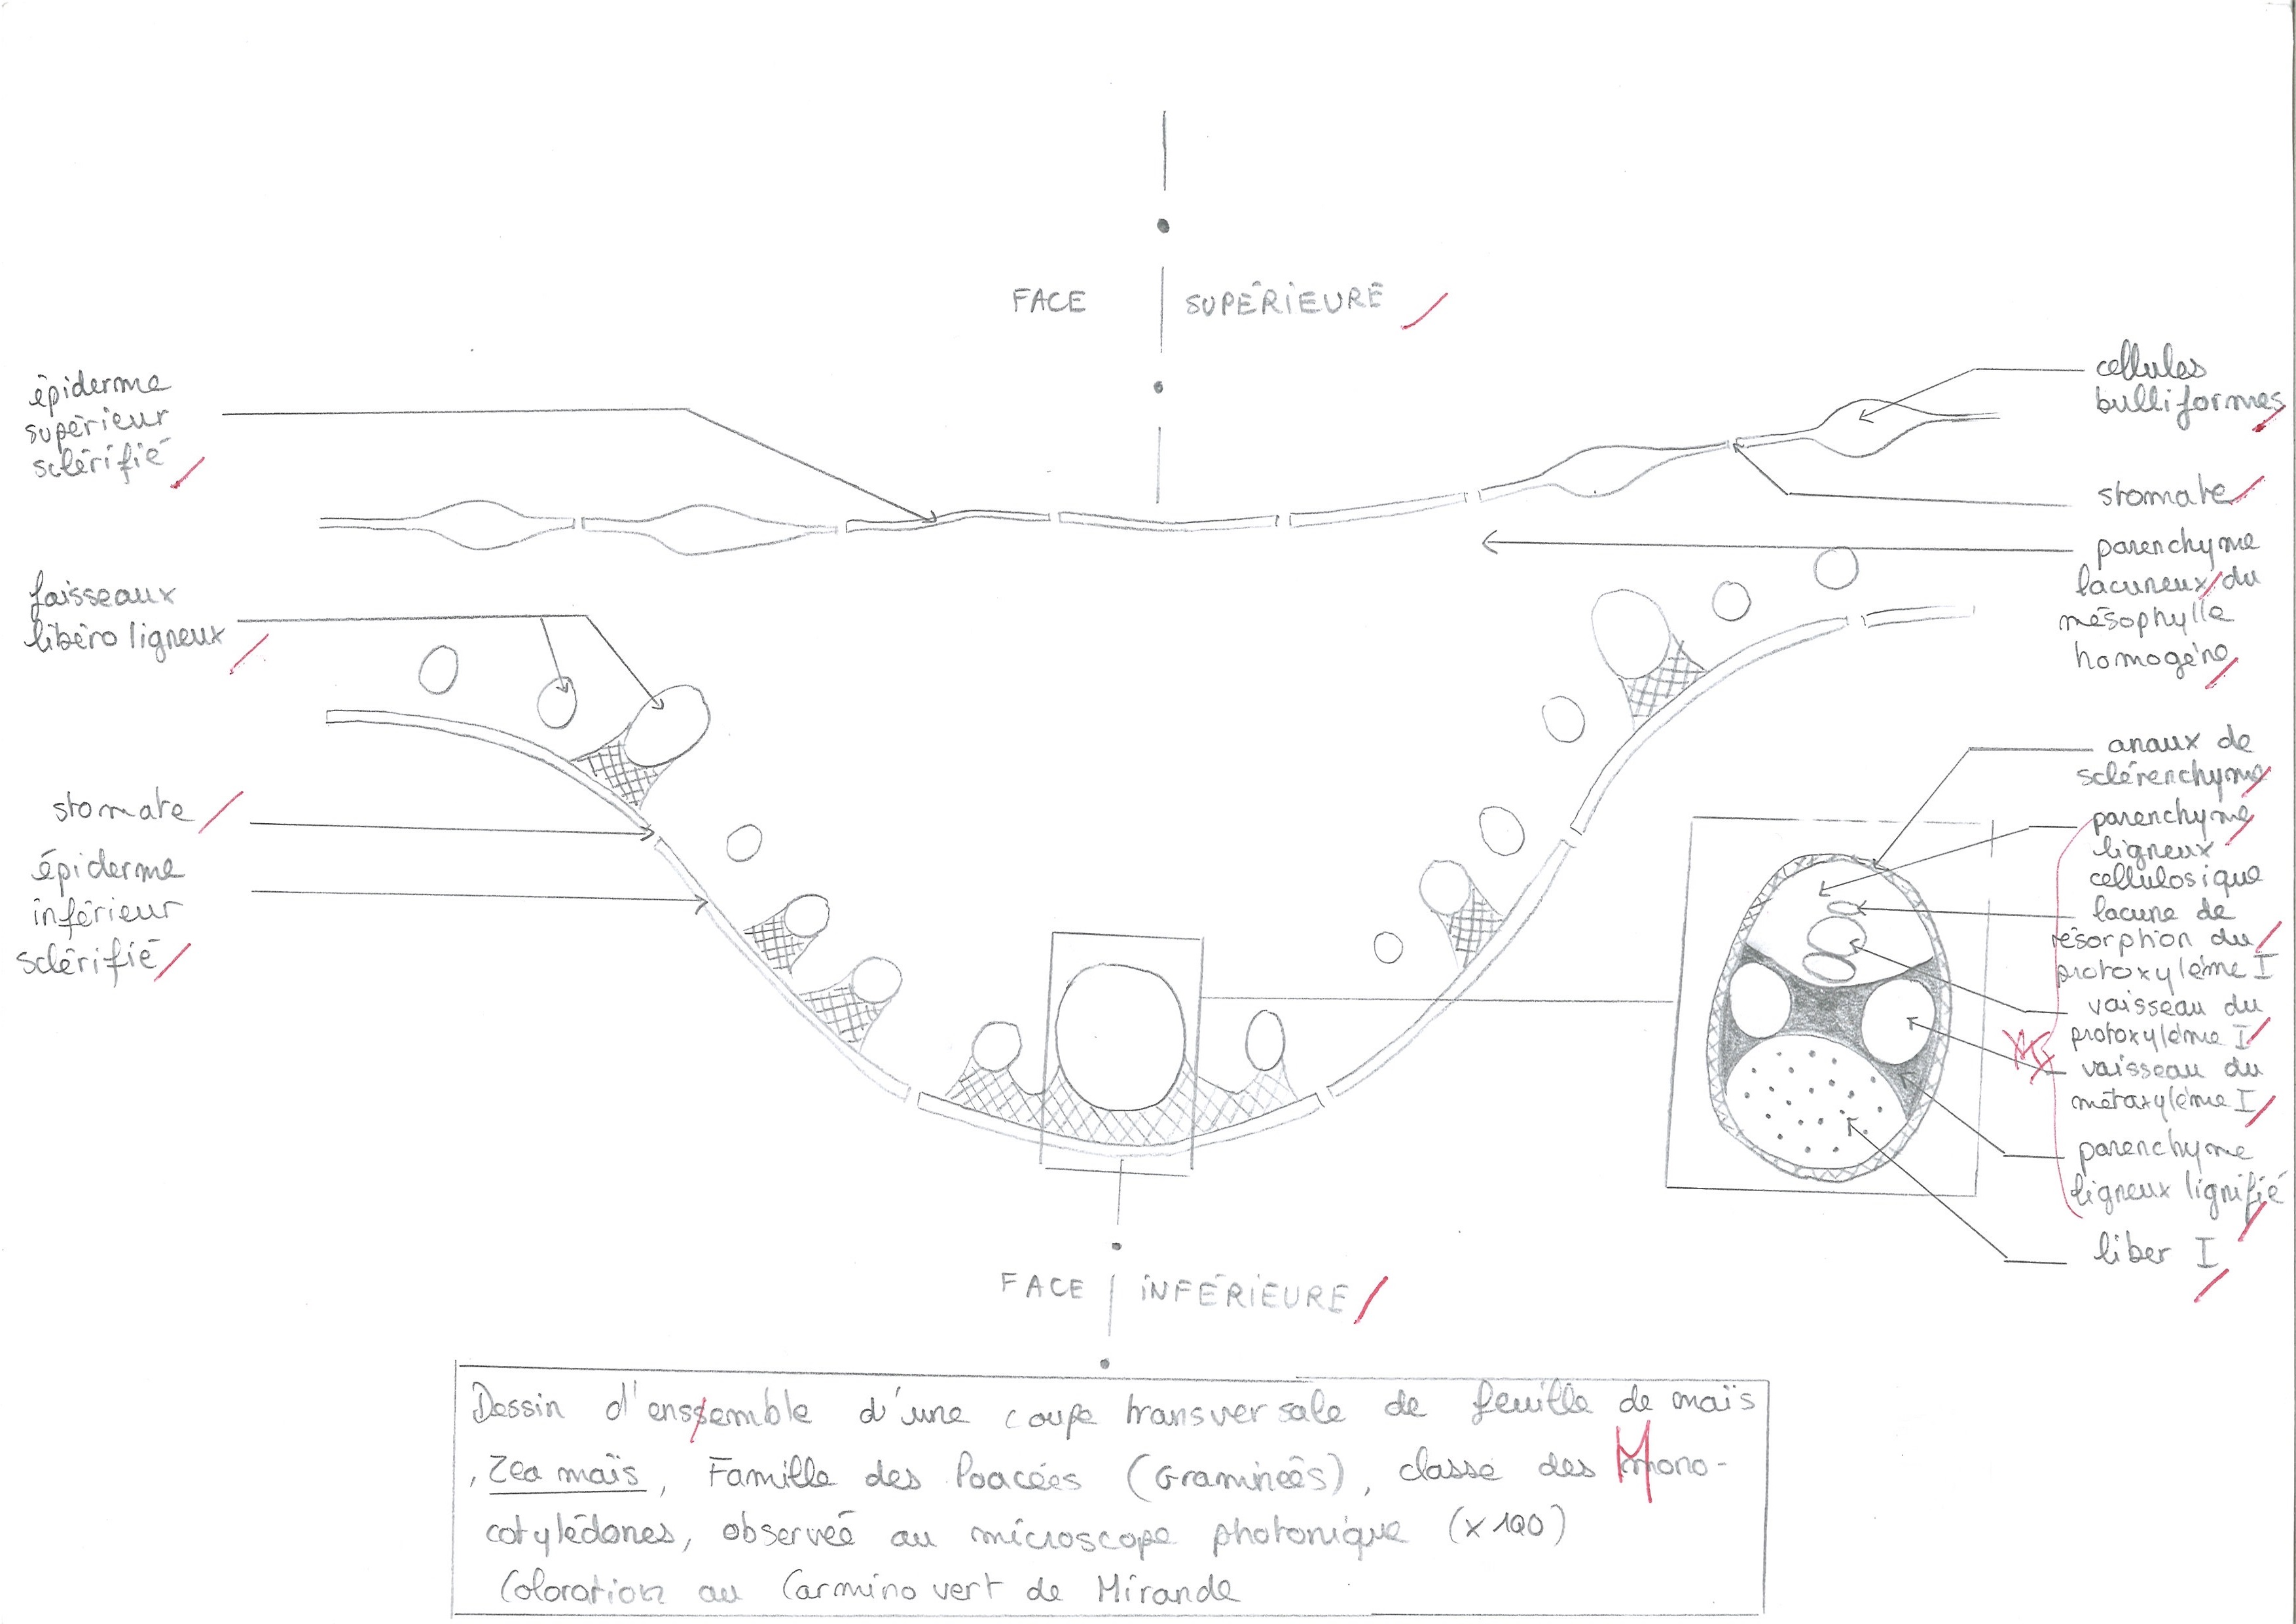 FACE SUPÉRIEURE
épiderme
supérieur
sclérifié
faisseaux
libéro ligneux
stomate
épiderme
inférieur
sclérifié
cellules
bulliformes
stomate
parenchyme
lacuneux du
mésophylle
homogène
anaux de
sclérenchyme
parenchyme
ligneux
cellulosique
lacune de
résorption du
protoxylème I
vaisseau du
protoxylème I
vaisseau du
métaxylème I
parenchyme
ligneux lignifié
liber I
FACE INFÉRIEURE
Dessin d'enssemble d'une coupe transversale de feuille de maïs
, Zea maïs, Famille des Poacées (Graminées), classe des Mono-
cotylédones, observée au microscope photonique (x100)
Coloration au Carmino vert de Mirande